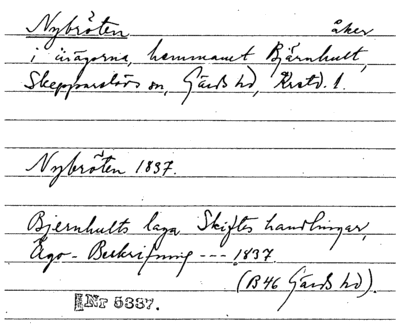 Nybröten åker
i inägorna, hemmanet Bjärnhult,
Skepparslövs sn, Gärds hd, Krstd. l.
Nybröten 1837.
Bjernhults laga Skiftes handlingar,
Ego-Beskrifning --- 1837
(B46 Gärds hd).
Nr 5337.